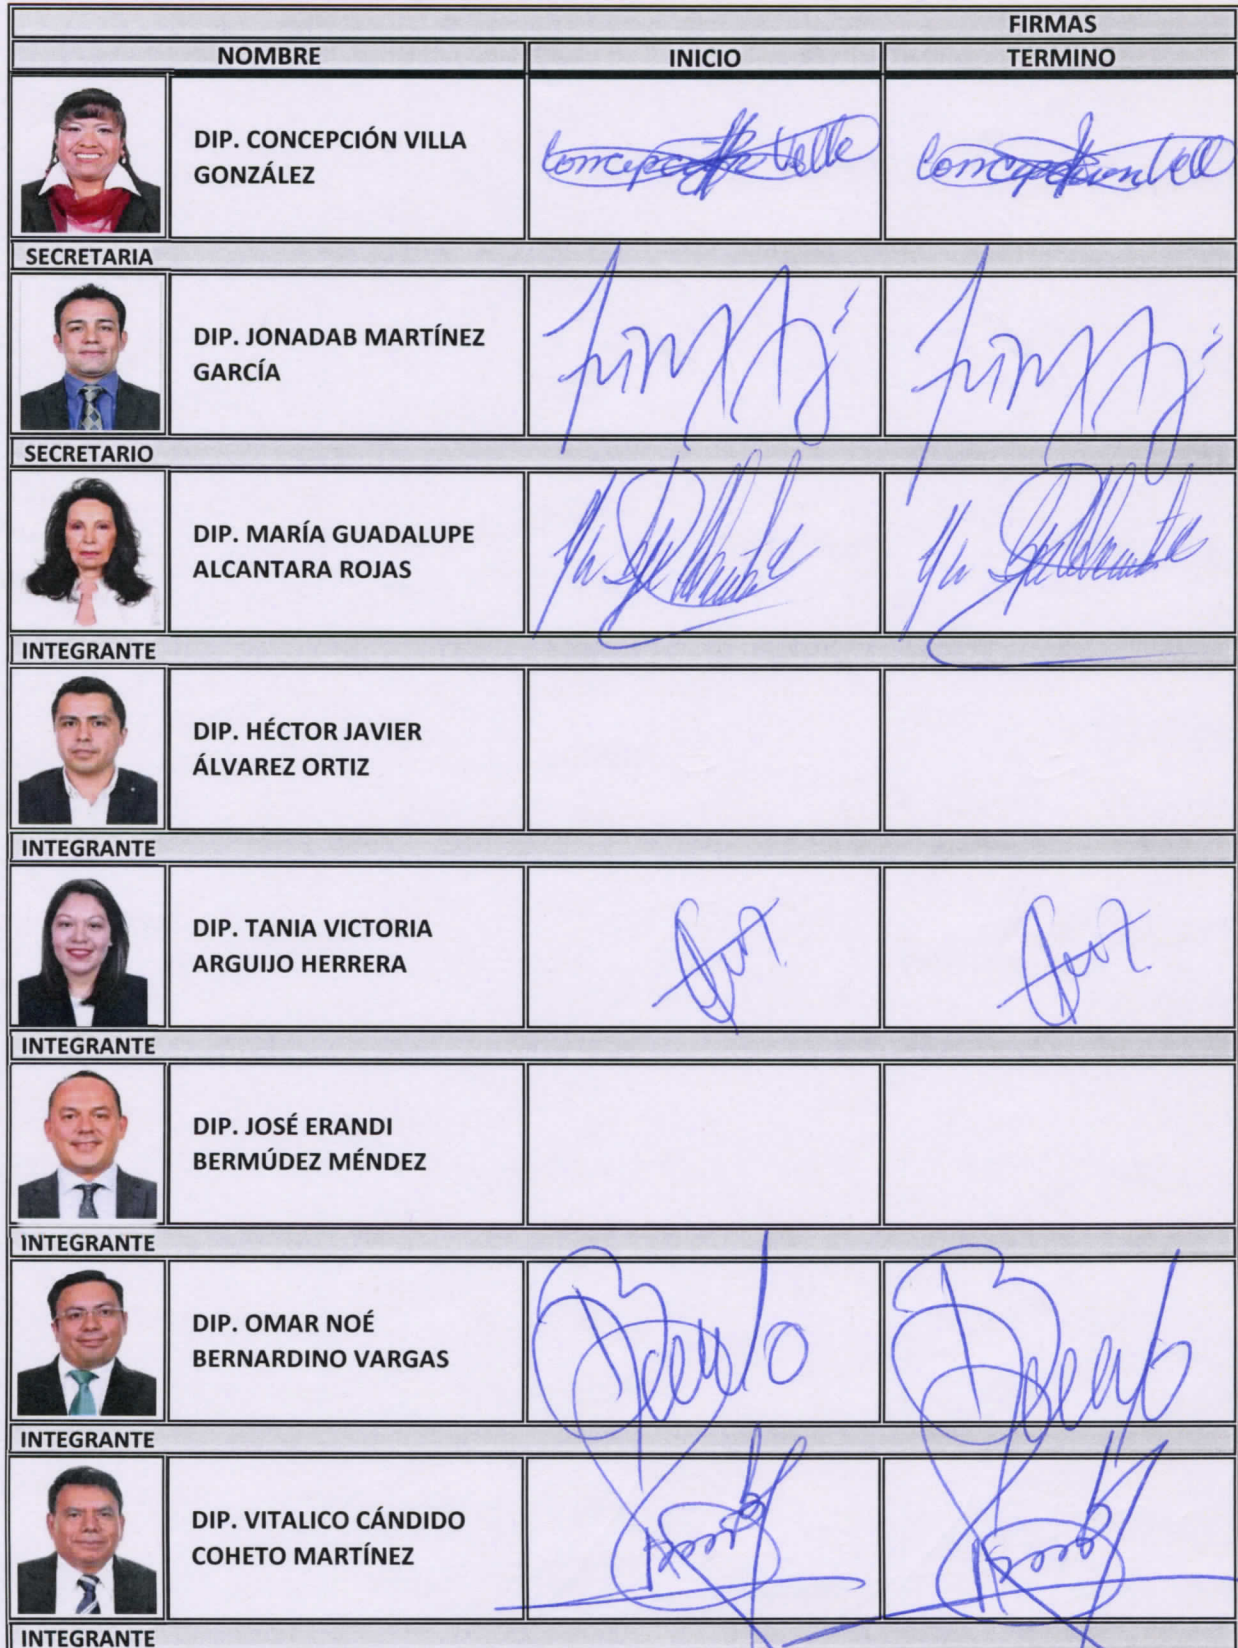 FIRMAS
NOMBRE INICIO TERMINO
DIP. CONCEPCIÓN VILLA
GONZÁLEZ
Concepción Villa Concepcion Vill
SECRETARIA
DIP. JONADAB MARTÍNEZ
GARCÍA
SECRETARIO
DIP. MARÍA GUADALUPE
ALCANTARA ROJAS
INTEGRANTE
DIP. HÉCTOR JAVIER
ÁLVAREZ ORTIZ
INTEGRANTE
DIP. TANIA VICTORIA
ARGUIJO HERRERA
INTEGRANTE
DIP. JOSÉ ERANDI
BERMÚDEZ MÉNDEZ
INTEGRANTE
DIP. OMAR NOÉ
BERNARDINO VARGAS
INTEGRANTE
DIP. VITALICO CÁNDIDO
COHETO MARTÍNEZ
INTEGRANTE